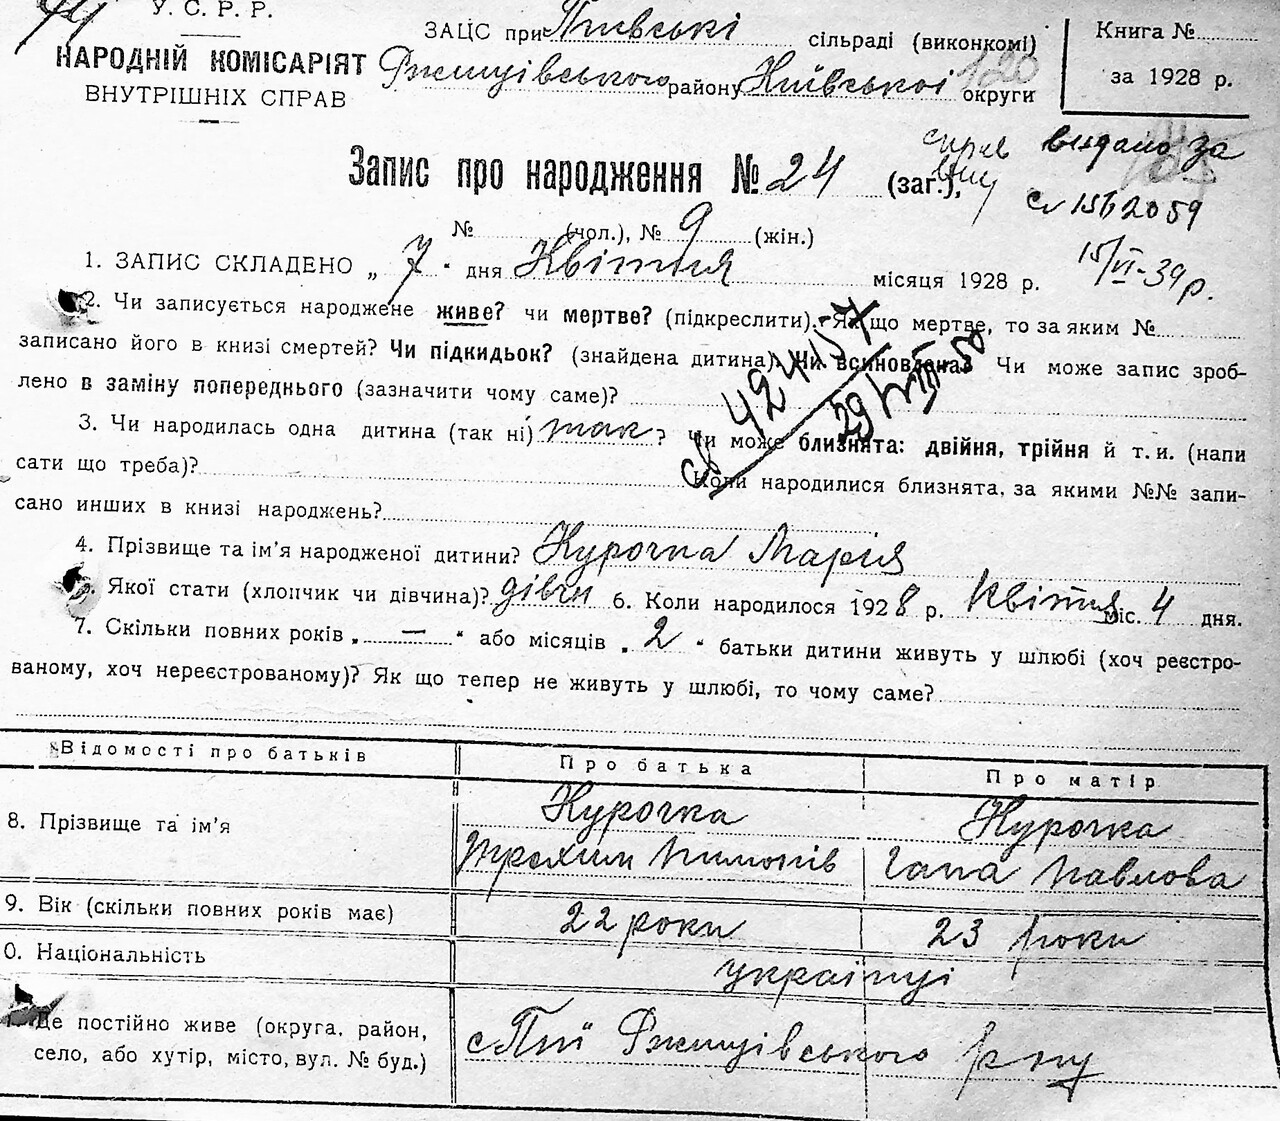 У. С. Р. Р.
НАРОДНІЙ КОМІСАРІЯТ
ВНУТРІШНІХ СПРАВ
ЗАЦС при Пиївські сільраді (виконкомі)
Ржищівського району Київської округи
120
Книга №
за 1928 р.
Запис про народження № 24 (заг.),
видано за
15/VI-39 р.
№ (чол.), № 9 (жін.)
1. ЗАПИС СКЛАДЕНО „ 7 " дня Квітня місяця 1928 р.
2. Чи записується народжене живе? чи мертве? (підкреслити). Як що мертве, то за яким №
записано його в книзі смертей? Чи підкидьок? (знайдена дитина). Чи всиновлена? Чи може запис зроб-
лено в заміну попереднього (зазначити чому саме)?
29/VIII 50
3. Чи народилась одна дитина (так ні) так? Чи може близнята: двійня, трійня й т. и. (напи
сати що треба)? Коли народилися близнята, за якими №№ запи-
сано инших в книзі народжень?
4. Прізвище та ім'я народженої дитини? Курочка Марія
Якої стати (хлопчик чи дівчина)? дівчи 6. Коли народилося 1928 р. Квітня міс. 4 дня.
7. Скільки повних років „ — " або місяців „ 2 " батьки дитини живуть у шлюбі (хоч реєстро-
ваному, хоч нереєстрованому)? Як що тепер не живуть у шлюбі, то чому саме?
Відомості про батьків Про батька Про матір
8. Прізвище та ім'я Курочка Курочка
Трохим Пимонів Гапа Павлова
9. Вік (скільки повних років має) 22 роки 23 роки
0. Національність українці
Де постійно живе (округа, район,
село, або хутір, місто, вул. № буд.) с Пії Ржищівського р ну